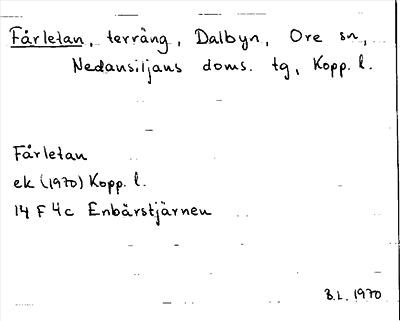 Fårletan, terräng, Dalbyn, Ore sn,
Nedansiljans doms. tg, Kopp. l.
Fårletan
ek (1970) Kopp. l.
14 F 4c Enbärstjärnen
B.L. 1970